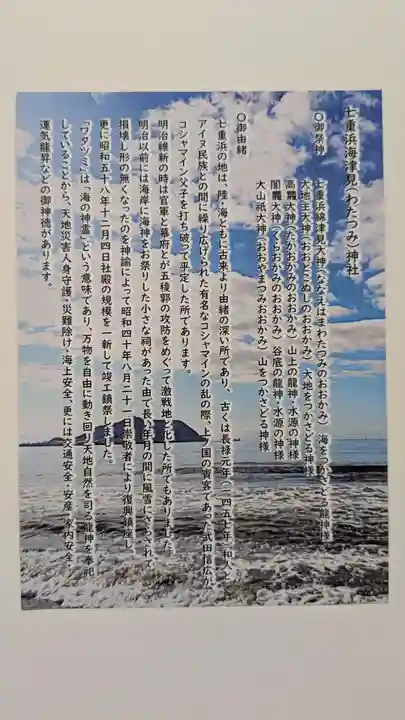 七重浜海津見(わたつみ)神社
〇御祭神
七重浜綿津見大神(ななえはまわたつみのおおかみ)海をつかさどる龍神様
大地主大神(おおとこぬしのおおかみ)大地をつかさどる神様
高龗大神(たかおかみのおおかみ)山上の龍神・水源の神様
闇龗大神(くらおかみのおおかみ)谷底の龍神・水源の神様
大山祇大神(おおやまつみおおかみ)山をつかさどる神様
〇御由緒
七重浜の地は、陸・海ともに古来より由緒の深い所であり、古くは長禄元年(一四五七年)和人と
アイヌ民族との間に繰り広げられた有名なコシャマインの乱の際、上ノ国の賓客であった武田信広が
コシャマイン父子を打ち破って平定した所であります。
明治維新の時は官軍と幕府とが五稜郭の攻防をめぐって激戦地と化した所でもありました。
明治以前には海岸に海神をお祭りした小さな祠があった由で長い年月の間に風雪にさらされて
損壊し形の無くなったのを神諭によって昭和四十年八月二十一日崇敬者により復興鎮座し、
更に昭和五十八年十二月四日社殿の規模を一新して竣工鎮祭しました。
「ワタツミ」は「海の神霊」という意味であり、万物を自由に動き回り天地自然を司る龍神を奉祀
していることから、天地災害人身守護・災難除け・海上安全、更には交通安全・安産・家内安全・
運気龍昇などの御神徳があります。